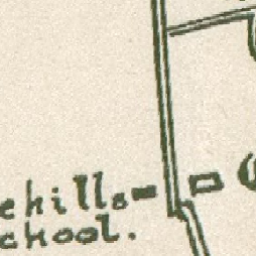 ehills
chool.